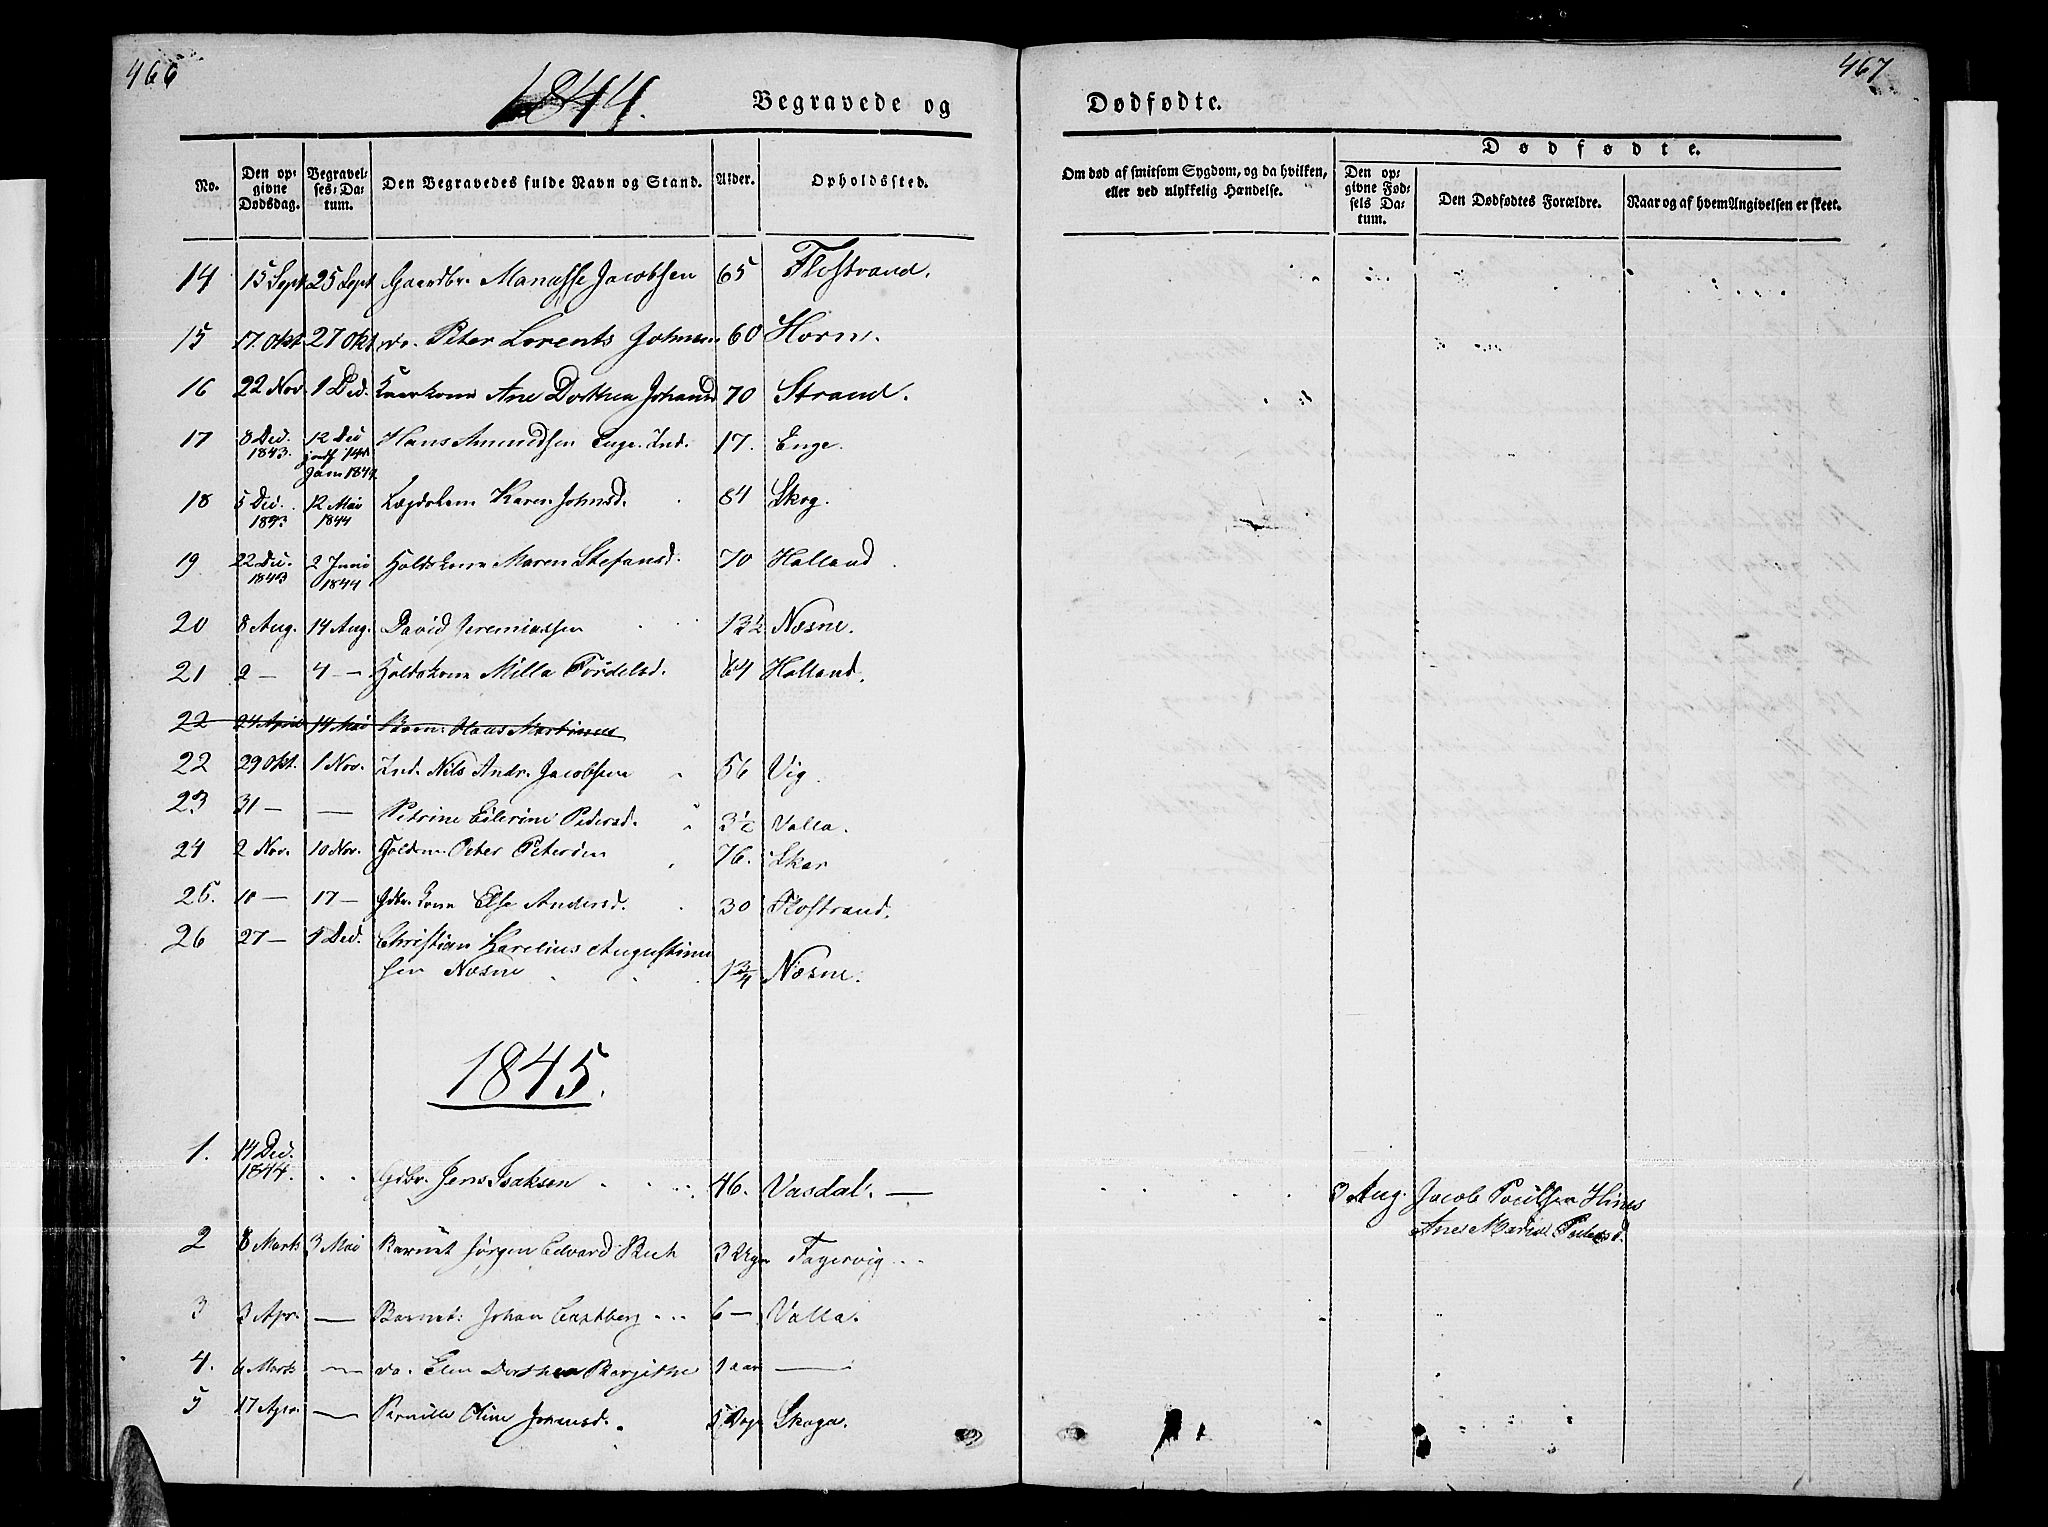 466
1844.
Begravede og
No.
Den opgivne Dødsdag.
Begravelses-Datum.
Den Begravedes fulde Navn og Stand.
Alder.
Opholdssted.
14 15 Sept 25 Sept Gaardbr. Manasse Jacobsen 65 Flostrand.
15 17. Okt. 27 Okt do. Peter Lorents Johnsen 60 Horn.
16 22 Nov. 1 Ded. Ane Dorthea Johansd 70 Strand.
17 8 Ded. 1843. 12 Dec Jan 1844 Hans Amundsen Enge. Ind. 17. Enge.
18 5 Dec. 1843 12 Mai 1844 Lægdslem Karen Johnsd. 84 Skog.
19 22 Dec. 1843 2 Juni 1844 Holdskone Maren Stefansd. 70 Halland
20 8 Aug. 14 Aug. David Jeremiassen 1 3/4 Næsne.
21 2 — 4 — Holdskone Milla Tordelsd. 64 Halland.
22 24 April 14 Mai Barn: Hans Martinus
22 29 Okt. 1 Nov. Ind. Nils Andr. Jacobsen 56 Vig.
23 31 — — Petrine Eilerine Pedersd. 3 1/2 Valla.
24 2 Nov. 10 Nov. Peter Petersen 76. Skar
25. 10 — 17 — Gdbr. kone Else Andersd. 30 Flostrand.
26 27 — 1 Ded. Christian Karelius Augustinus
sen Næsne 1 3/4 Næsne.
1845.
1. 14 Ded. 1844. Gdbr. Jens Isaksen 46. Vasdal. —
2 8 Marts 3 Mai Barnet Jørgen Edvard 3 Uger Fagervig
3 3 Apr. — Barnet: Johan Castberg 6 — Valla.
4. 6 Marts — do. Elen Dorthea Bergithe 1 aar —
5 17 Apr. — Pernille Oline Johansd. 5 Dage Skoga.
467
Dødfødte.
Om død af smitsom Sygdom, og da hvilken, eller ved ulykkelig Hændelse.
Dødfødte.
Den opgivne Fødsels Datum.
Den Dødfødtes Forældre.
Naar og af hvem Angivelsen er skeet.
3 Aug. Jacob Poulsen Hines
Ane Maria Pedersd.